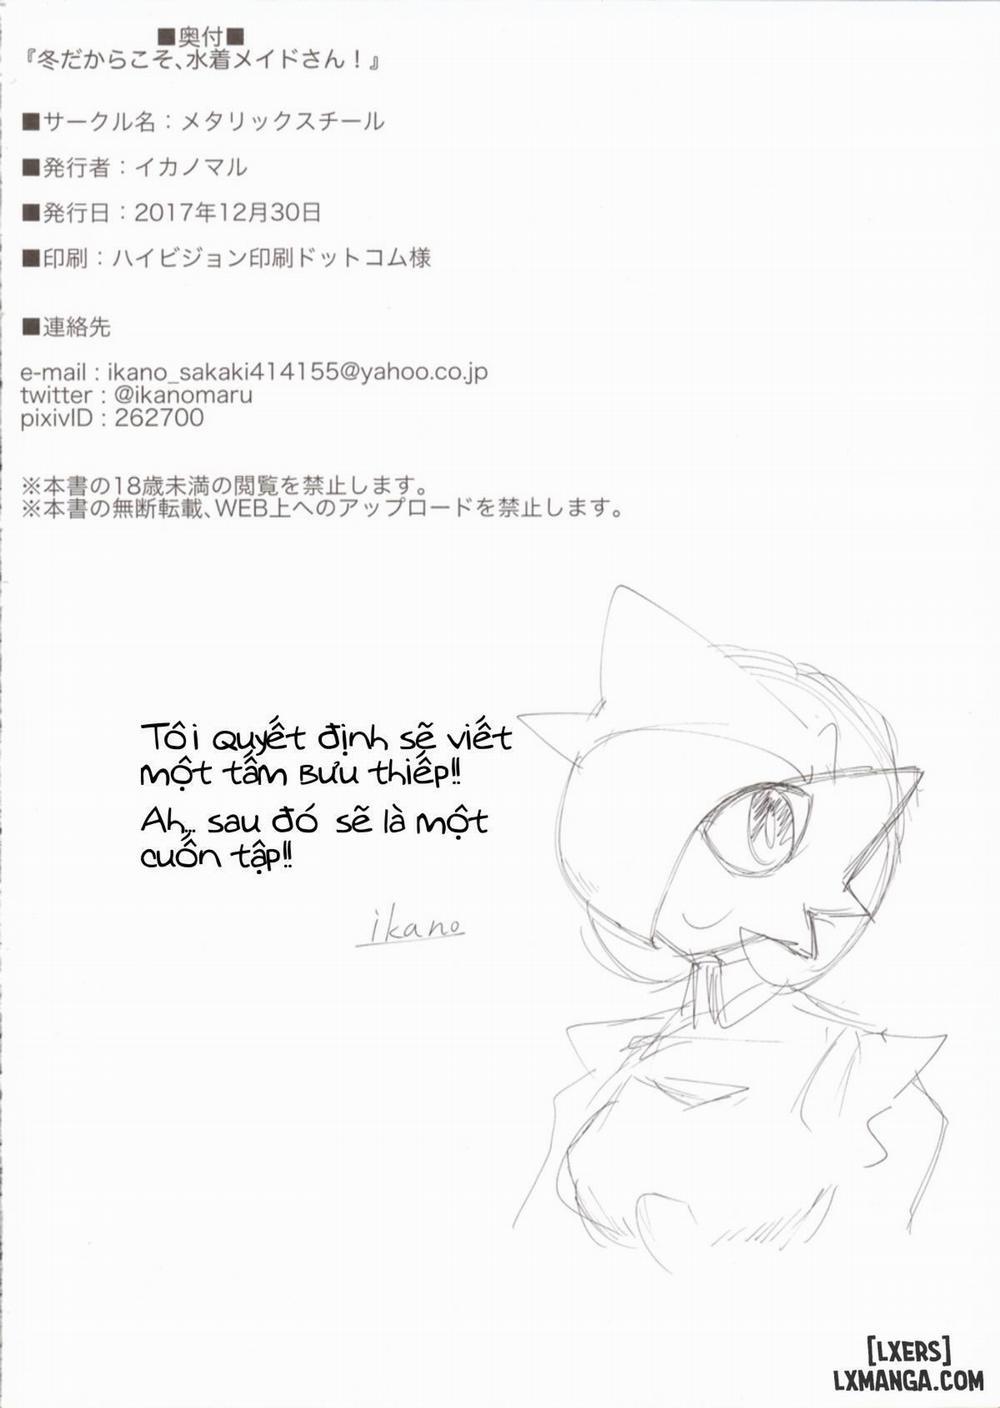 ■奥付■
『冬だからこそ、水着メイドさん！』
■サークル名：メタリックスチール
■発行者：イカノマル
■発行日：2017年12月30日
■印刷：ハイビジョン印刷ドットコム様
■連絡先
e-mail : ikano_sakaki414155@yahoo.co.jp
twitter : @ikanomaru
pixivID : 262700
※本書の18歳未満の閲覧を禁止します。
※本書の無断転載、WEB上へのアップロードを禁止します。
Tôi quyết định sẽ viết
một tấm bưu thiếp!!
Ah... sau đó sẽ là một
cuốn tập!!
ikano
[LXERS]
LXMANGA.COM